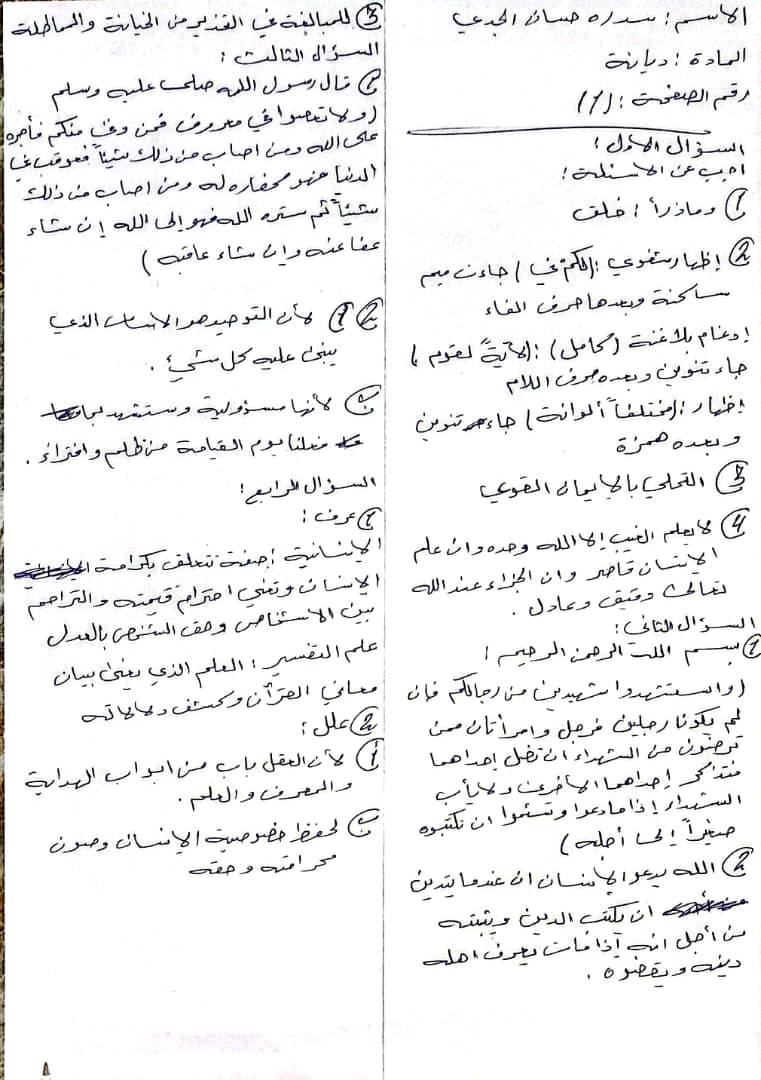 الاسم : سدره حسان الجدي
المادة : ديانة
رقم الصفحة : (١)
السؤال الأول :
اجب عن الاسئلة :
١) وماذرأ : خلق
٢) إظهار شفوي : (لكم في) جاءت ميم
ساكنة وبعدها حرف الفاء
إدغام بلا غنة (كامل) : (لآيةً لقوم)
جاء تنوين وبعده حرف اللام
إظهار : (مختلفاً ألوانه) جاء تنوين
وبعده همزة
٣) التحلي بالإيمان القوي
٤) لا يعلم الغيب إلا الله وحده وان علم
الإنسان قاصر وان الجزاء عند الله
تعالى دقيق وعادل .
السؤال الثاني :
١) بسم الله الرحمن الرحيم :
(واستشهدوا شهيدين من رجالكم فإن
لم يكونا رجلين فرجل وامرأتان ممن
ترضون من الشهداء ان تضل إحداهما
فتذكر إحداهما الأخرى ولا يأب
الشهداء إذا مادعوا وتسئموا ان تكتبوه
صغيراً إلى أجله)
٢) الله يدعو الإنسان ان عندما يتدين
ان يكتب الدين ويثبته
من أجل انه إذا مات يعرف اهله
دينه ويقضوه .
٣) للمبالغة في التحذير من الخيانة والمماطلة
السؤال الثالث :
١) قال رسول الله صلى عليه وسلم
(ولا تعصوا في معروف فمن وفى منكم فأجره
على الله ومن اصاب من ذلك شيئاً فعوقب في
الدنيا فهو كفاره له ومن اصاب من ذلك
شيئاً ثم ستره الله فهو إلى الله إن شاء
عفا عنه وان شاء عاقبه)
٢) ١) لأن التوحيد هو الاساس الذي
يبنى عليه كل شيئ .
ب) لأنها مسؤولية وستشهد بما
فعلنا يوم القيامة من ظلم وافتراء .
السؤال الرابع :
١) عرف :
الإنسانية : صفة تتعلق بكرامة
الإنسان وتعني احترام قيمته والتراحم
بين الاشخاص وحق الشخص بالعدل
علم التفسير : العلم الذي يعنى ببيان
معاني القرآن وكشف دلالاته
٢) علل :
١) لأن العقل باب من ابواب الهداية
والمعرف والعلم .
ب) لحفظ خصوصية الإنسان وصون
كرامته وحقه